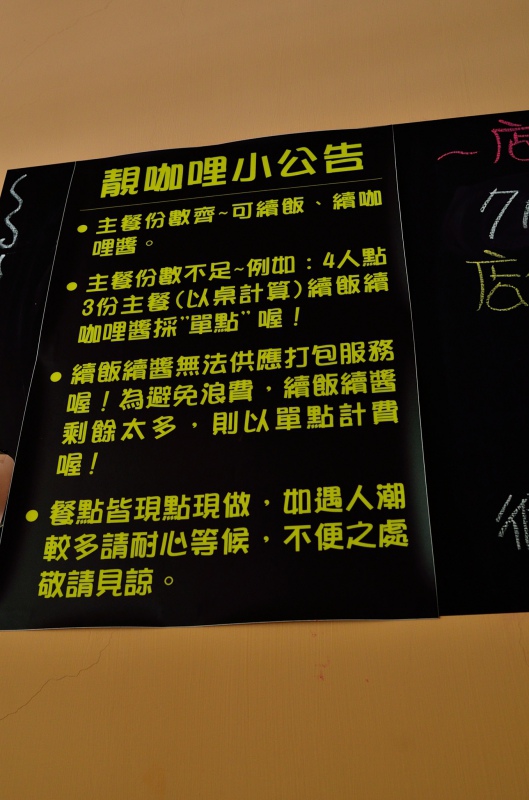 靚咖哩小公告
• 主餐份數齊~可續飯、續咖
哩醬。
• 主餐份數不足~例如：4人點
3份主餐(以桌計算)續飯續
咖哩醬採"單點"喔！
• 續飯續醬無法供應打包服務
喔！為避免浪費，續飯續醬
剩餘太多，則以單點計費
喔！
• 餐點皆現點現做，如遇人潮
較多請耐心等候，不便之處
敬請見諒。
~店
店